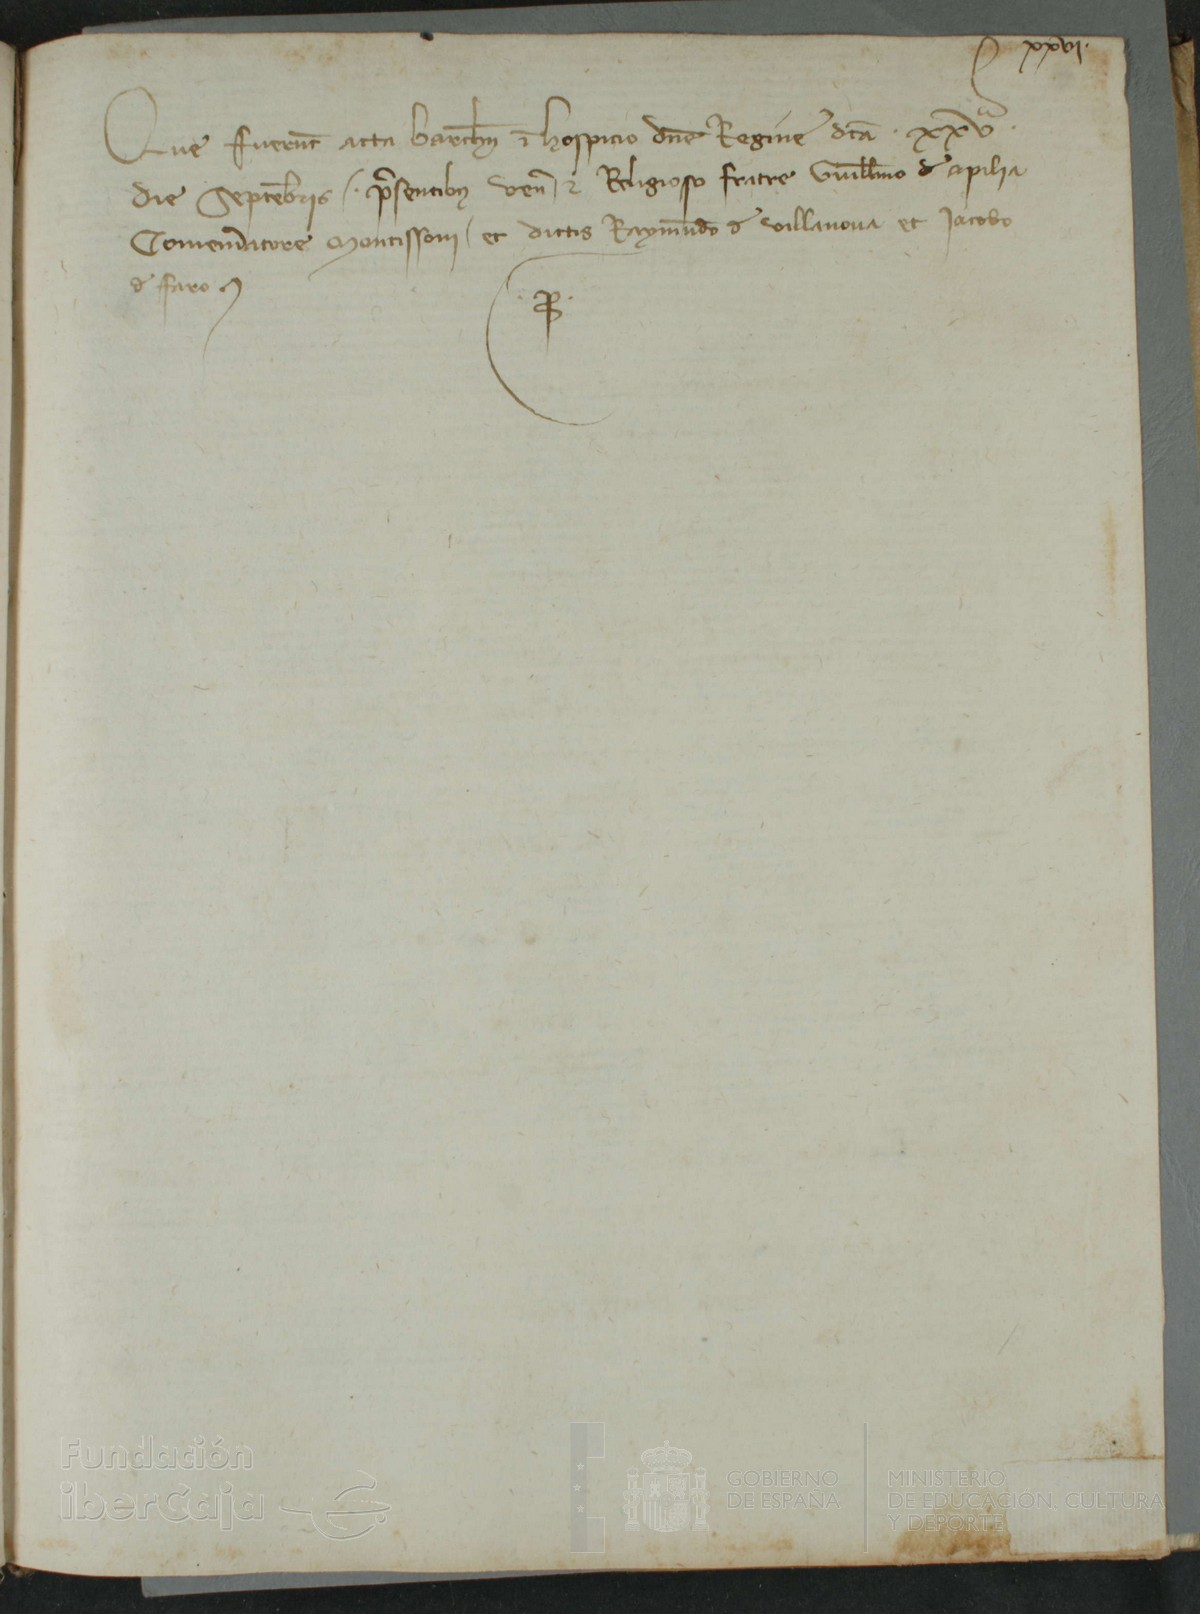 xxvi.
Que fuerunt acta barchn in hospicio dne Regine dcã . xxvª .
die Septembris /. presentibus ven / et Religioso fratre Guillmo de apilia
Comendatore Montissoni / et dictis Raymundo de villanova et Jacobo
de faro
Fundación
iberCaja
GOBIERNO
DE ESPAÑA
MINISTERIO
DE EDUCACIÓN, CULTURA
Y DEPORTE